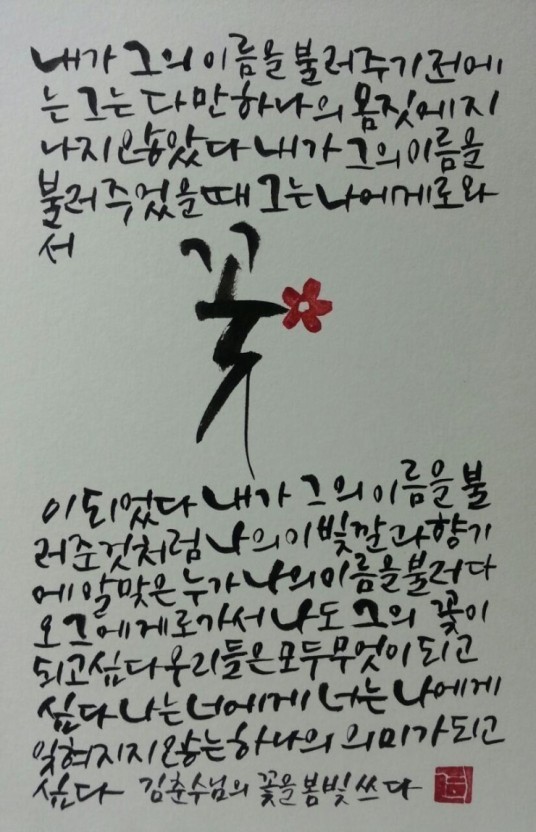 내가 그의 이름을 불러주기 전에
는 그는 다만 하나의 몸짓에 지
나지 않았다 내가 그의 이름을
불러주었을 때 그는 나에게로 와
서
꽃
이 되었다 내가 그의 이름을 불
러준 것처럼 나의 이 빛깔과 향기
에 알맞은 누가 나의 이름을 불러다
오 그에게로 가서 나도 그의 꽃이
되고 싶다 우리들은 모두 무엇이 되고
싶다 나는 너에게 너는 나에게
잊혀지지 않는 하나의 의미가 되고
싶다 김춘수님의 꽃을 봄빛 쓰다